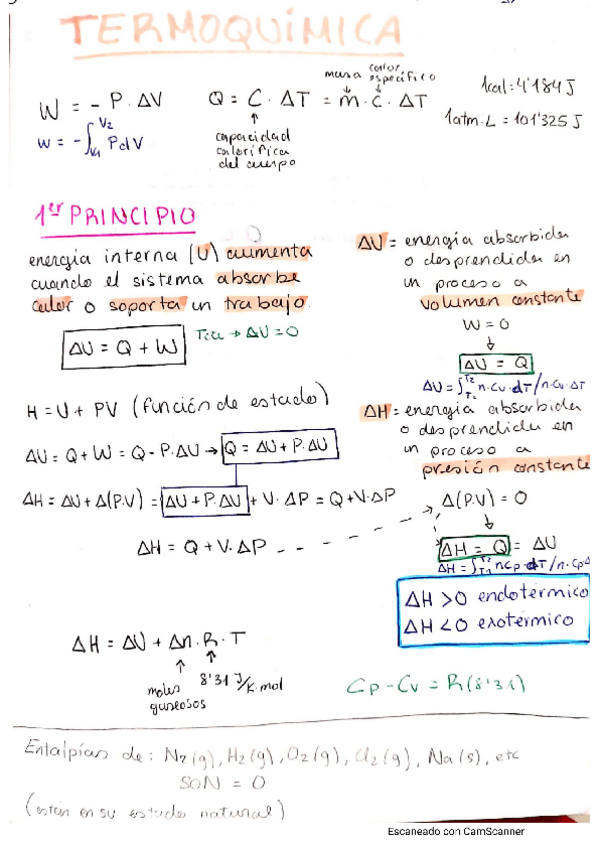 TERMOQUÍMICA
W = - P. ΔV
W = -∫ᵥ₁^V₂ PdV
Q = C . ΔT = m . c . ΔT
masa
calor específico
capacidad
calorífica
del cuerpo
1cal = 4'184 J
1atm.L = 101'325 J
1er PRINCIPIO
energía interna (U) aumenta
cuando el sistema absorbe
calor o soporta un trabajo.
ΔU = Q + W
Tcte → ΔU = 0
ΔU = energía absorbida
o desprendida en
un proceso a
volumen constante
W = 0
ΔU = Q
ΔU = ∫T₁^T₂ n.Cv.dT / n.Cv.ΔT
H = U + PV (función de estado)
ΔU = Q + W = Q - P.ΔV → Q = ΔU + P.ΔV
ΔH = ΔU + Δ(P.V) = ΔU + P.ΔV + V. ΔP = Q + V.ΔP
ΔH = Q + V.ΔP
ΔH = energía absorbida
o desprendida en
un proceso a
presión constante
Δ(P.V) = 0
ΔH = Q = ΔU
ΔH = ∫T₁^T₂ nCp.dT / n.CpΔ
ΔH > 0 endotérmico
ΔH < 0 exotérmico
ΔH = ΔU + Δn. R . T
moles
gaseosos
8'31 J/K.mol
Cp - Cv = R (8'31)
Entalpías de : N₂(g), H₂(g), O₂(g), Cl₂(g), Na(s), etc
SON = 0
(están en su estado natural)
Escaneado con CamScanner